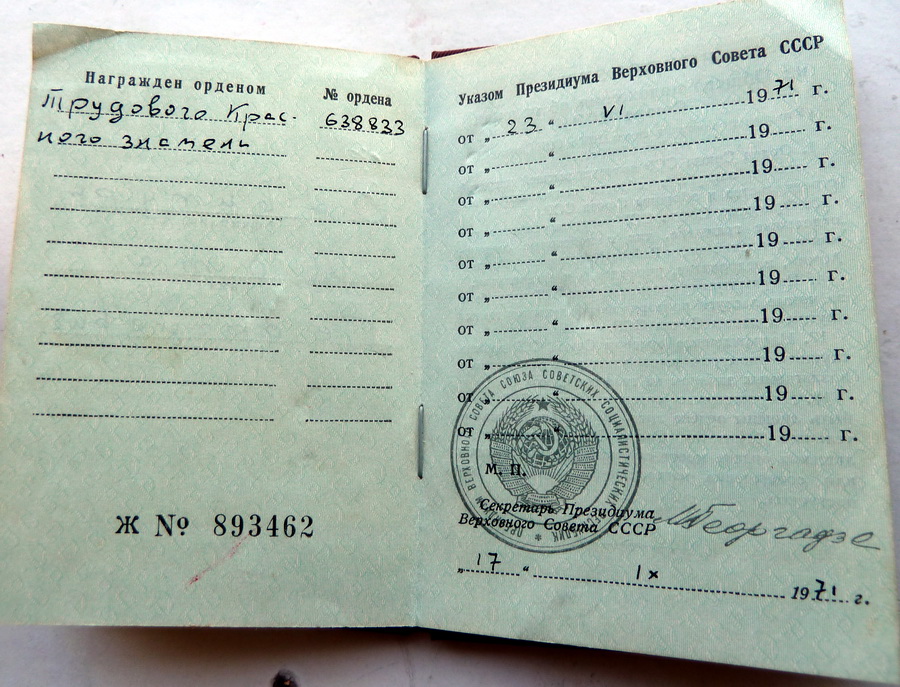 Награжден орденом
№ ордена
Трудового Крас-
638833
ного знамени
Ж № 893462
Указом Президиума Верховного Совета СССР
от „ 23 “ VI 1971 г.
от „ “ 19 г.
от „ “ 19 г.
от „ “ 19 г.
от „ “ 19 г.
от „ “ 19 г.
от „ “ 19 г.
от „ “ 19 г.
от „ “ 19 г.
от „ “ 19 г.
М. П.
ПРЕЗИДИУМ ВЕРХОВНОГО СОВЕТА СОЮЗА СОВЕТСКИХ СОЦИАЛИСТИЧЕСКИХ РЕСПУБЛИК
Секретарь Президиума
Верховного Совета СССР
М Георгадзе
„ 17 “ IX 1971 г.